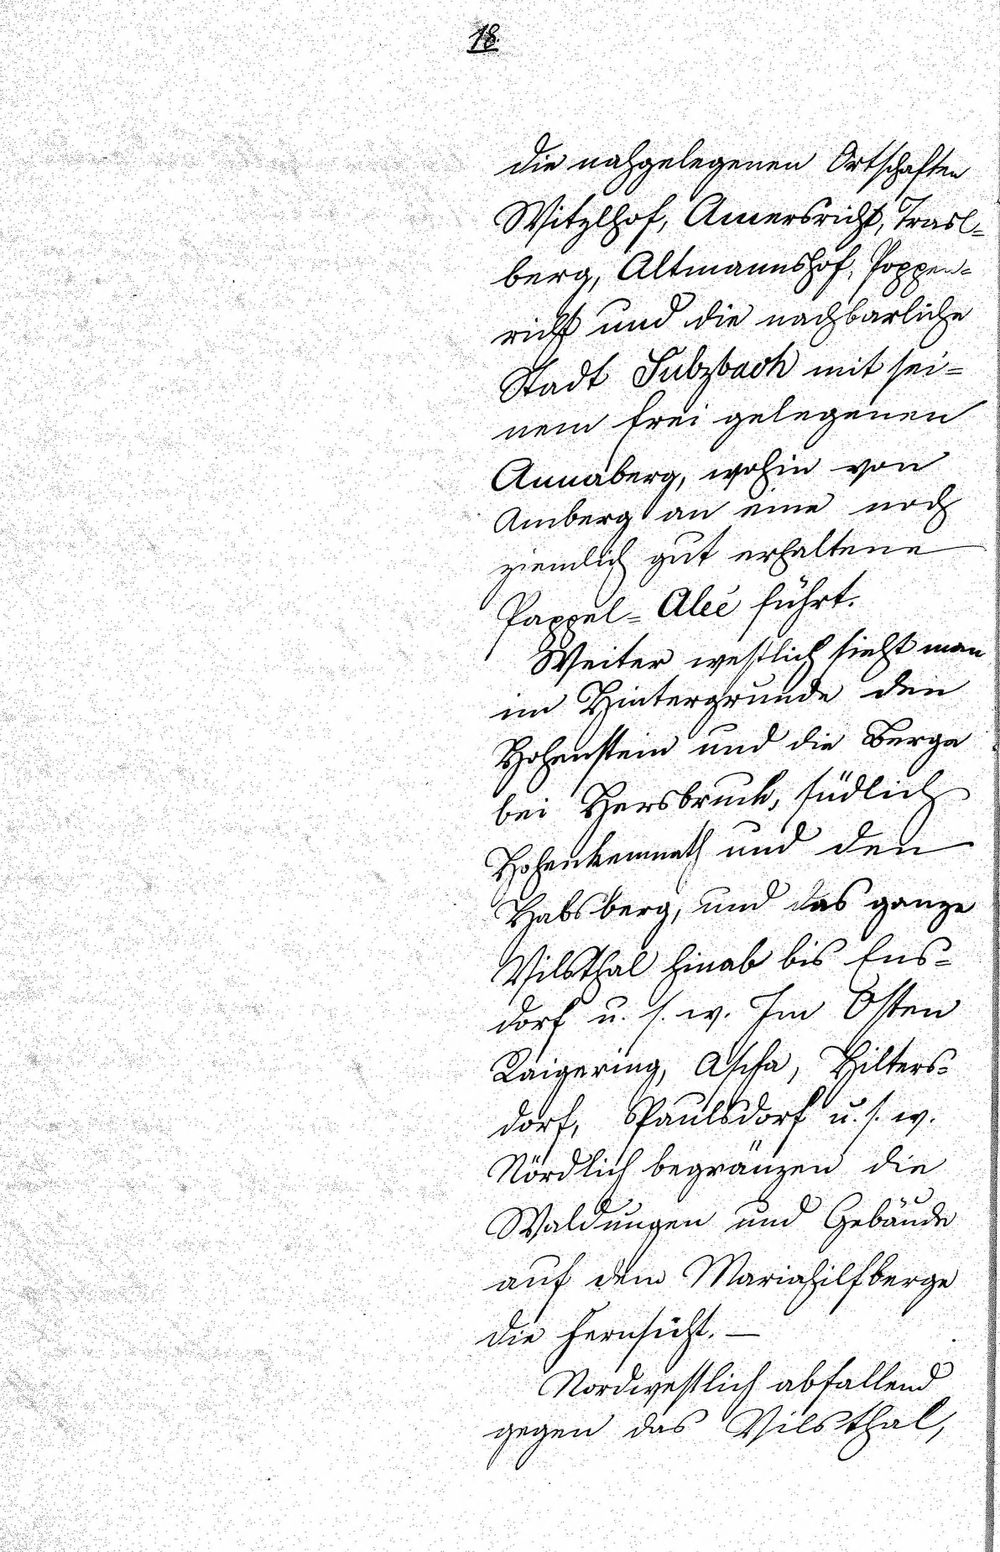 18.
die nahgelegenen Ortschaften
Witzlhof, Amersricht, Trasl=
berg, Altmannshof, Poppen=
richt und die nachbarliche
Stadt Sulzbach mit sei=
nem frei gelegenen
Annaberg, wohin von
Amberg an eine noch
ziemlich gut erhaltene
Pappel=Aleé führt.
Weiter westlich sieht man
im Hintergrunde den
Hohenstein und die Berge
bei Hersbruck, südlich
Hohenkemnath und den
Habsberg, und das ganze
Vilsthal hinab bis Ens=
dorf u. s. w. Im Osten
Raigering, Ascha, Hilters=
dorf, Paulsdorf u. s. w.
Nördlich begränzen die
Waldungen und Gebäude
auf dem Mariahilfberge
die Fernsicht. —
Nordwestlich abfallend
gegen das Vilsthal,